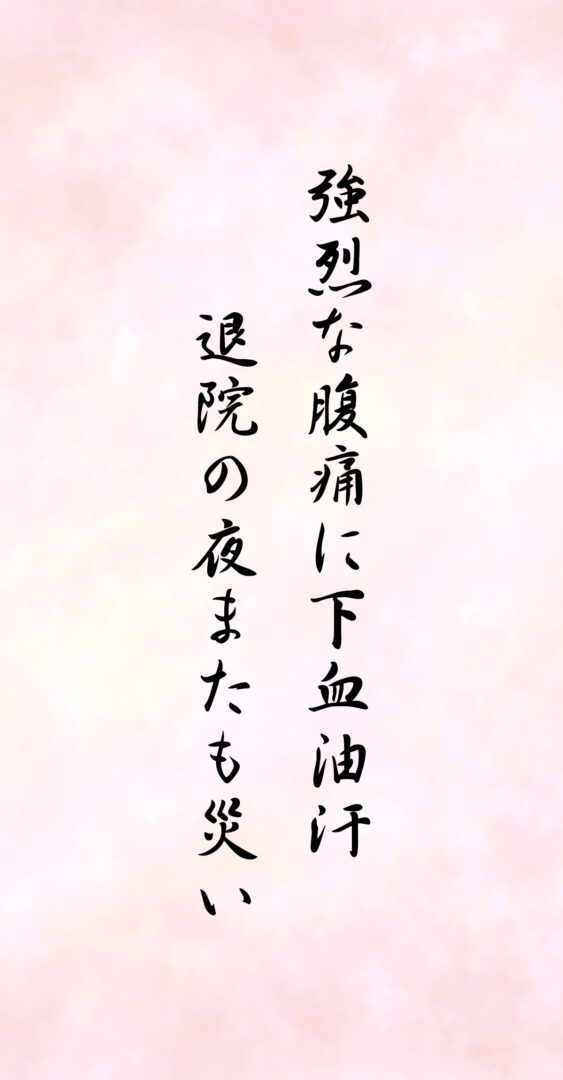 強烈な腹痛に下血油汗
退院の夜またも災い